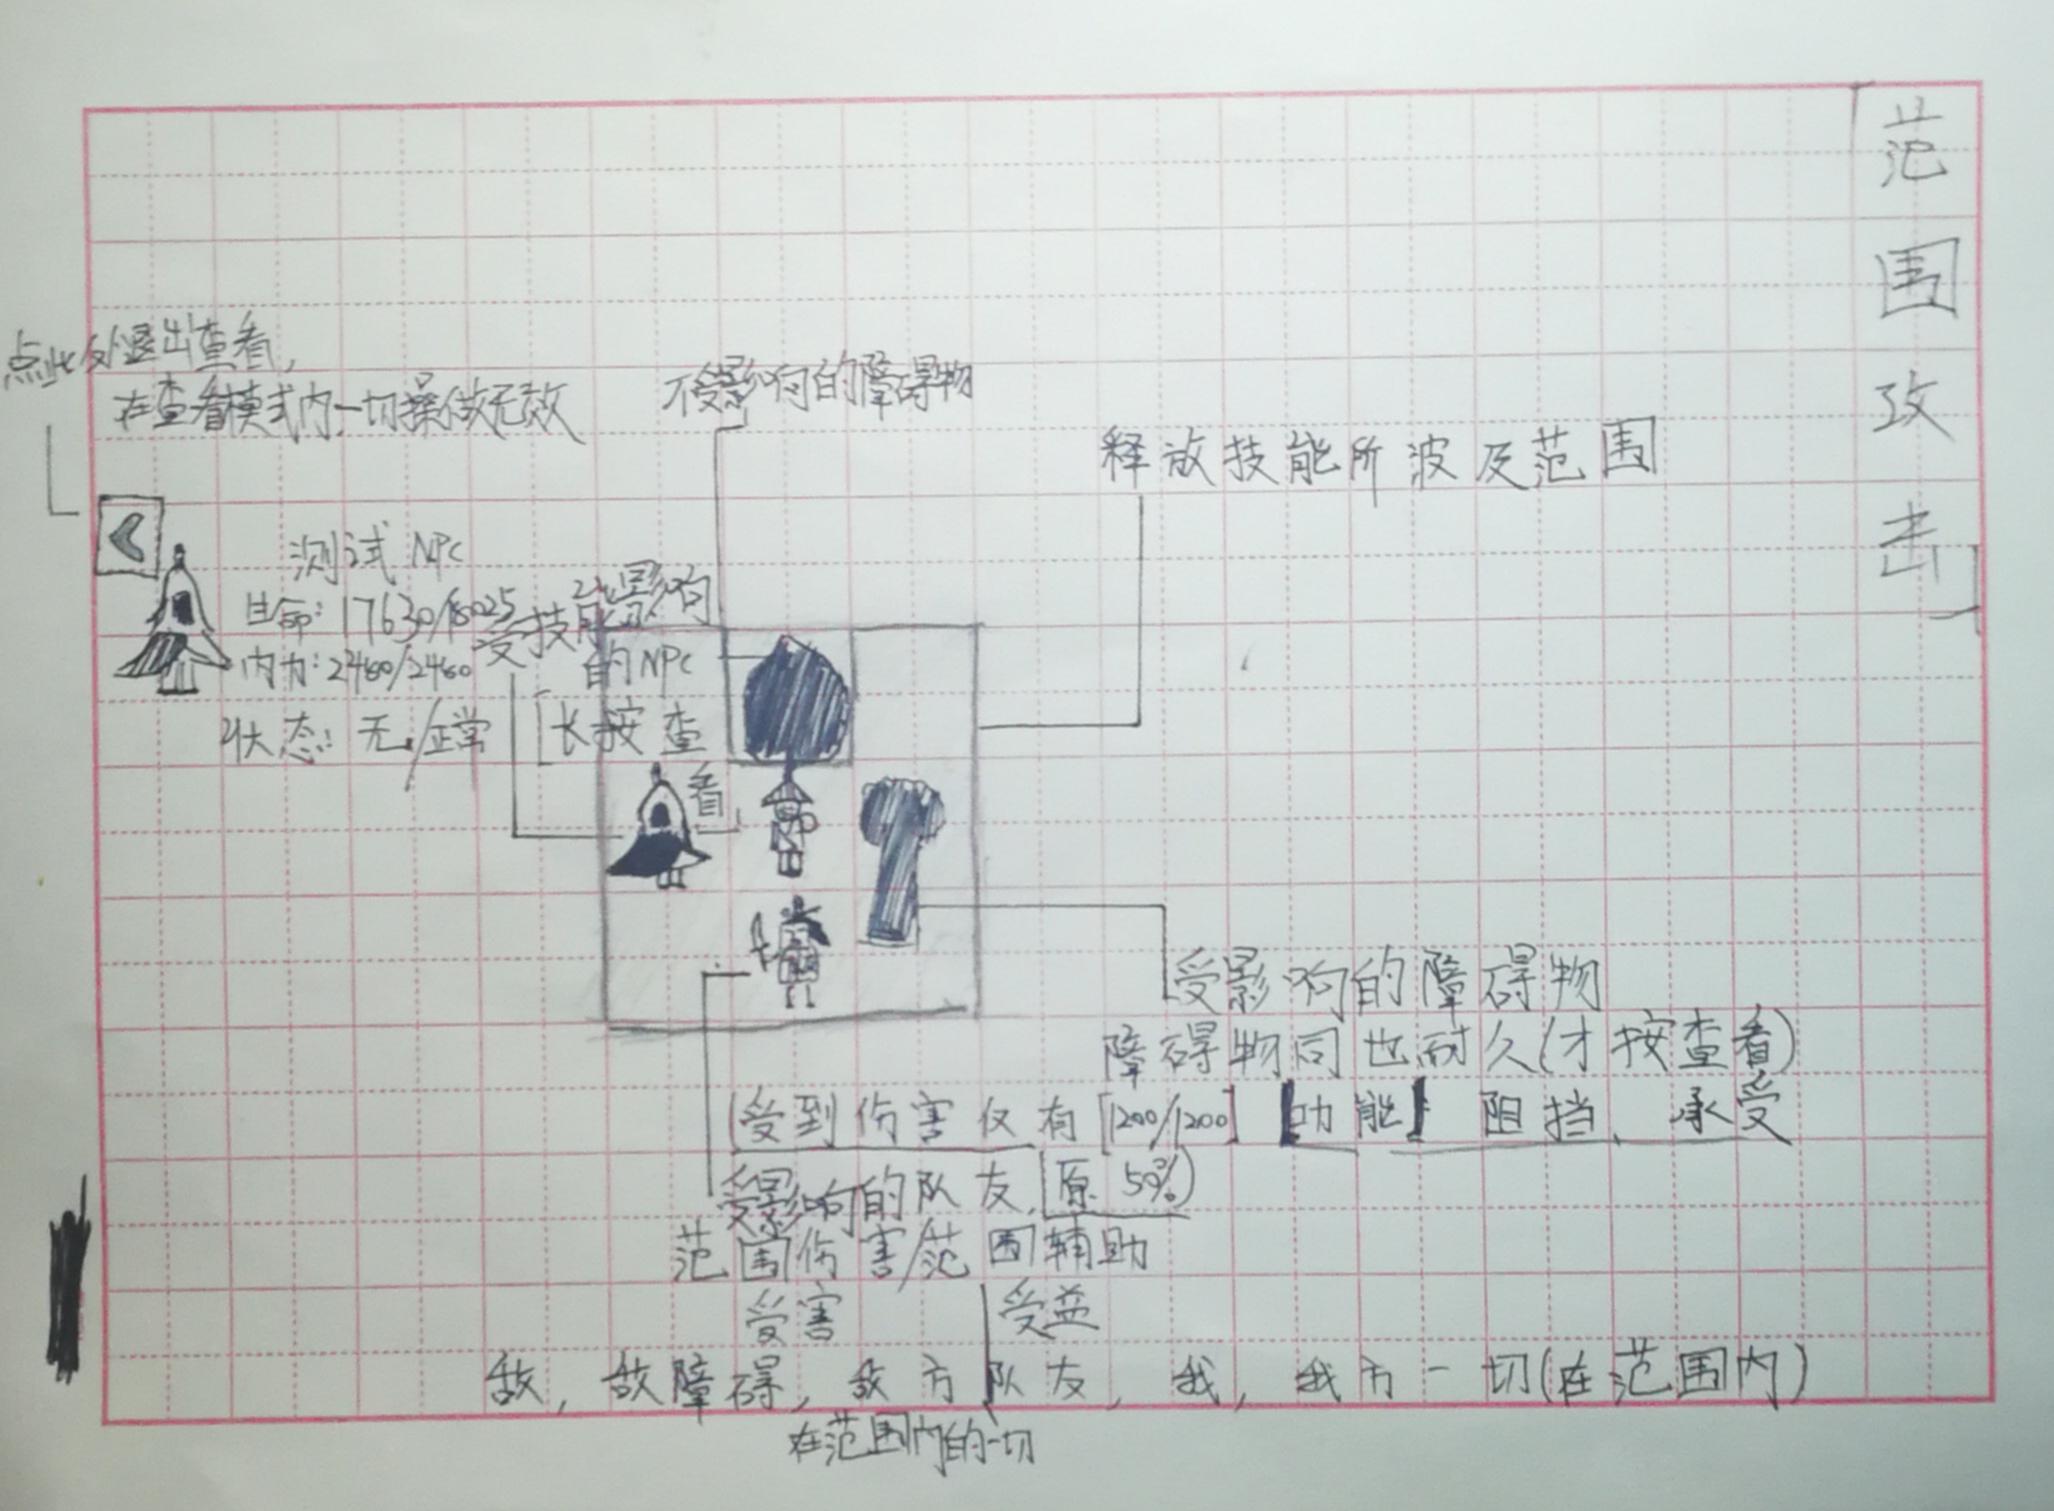 范围攻击
点此处退出查看,
在查看模式内一切操做无效
不受影响的障碍物
释放技能所波及范围
测试NPC
生命:17630/18025
内力:2460/2460
状态:无/正常
受技能影响
的NPC
[长按查
看]
受影响的障碍物
障碍物同也耐久(才按查看)
[1200/1200]【功能】阻挡、承受
(受到伤害仅有
原50%)
受影响的队友,
范围伤害/范围辅助
受害 受益
敌,敌障碍,敌方队友,我,我方一切(在范围内)
在范围内的一切